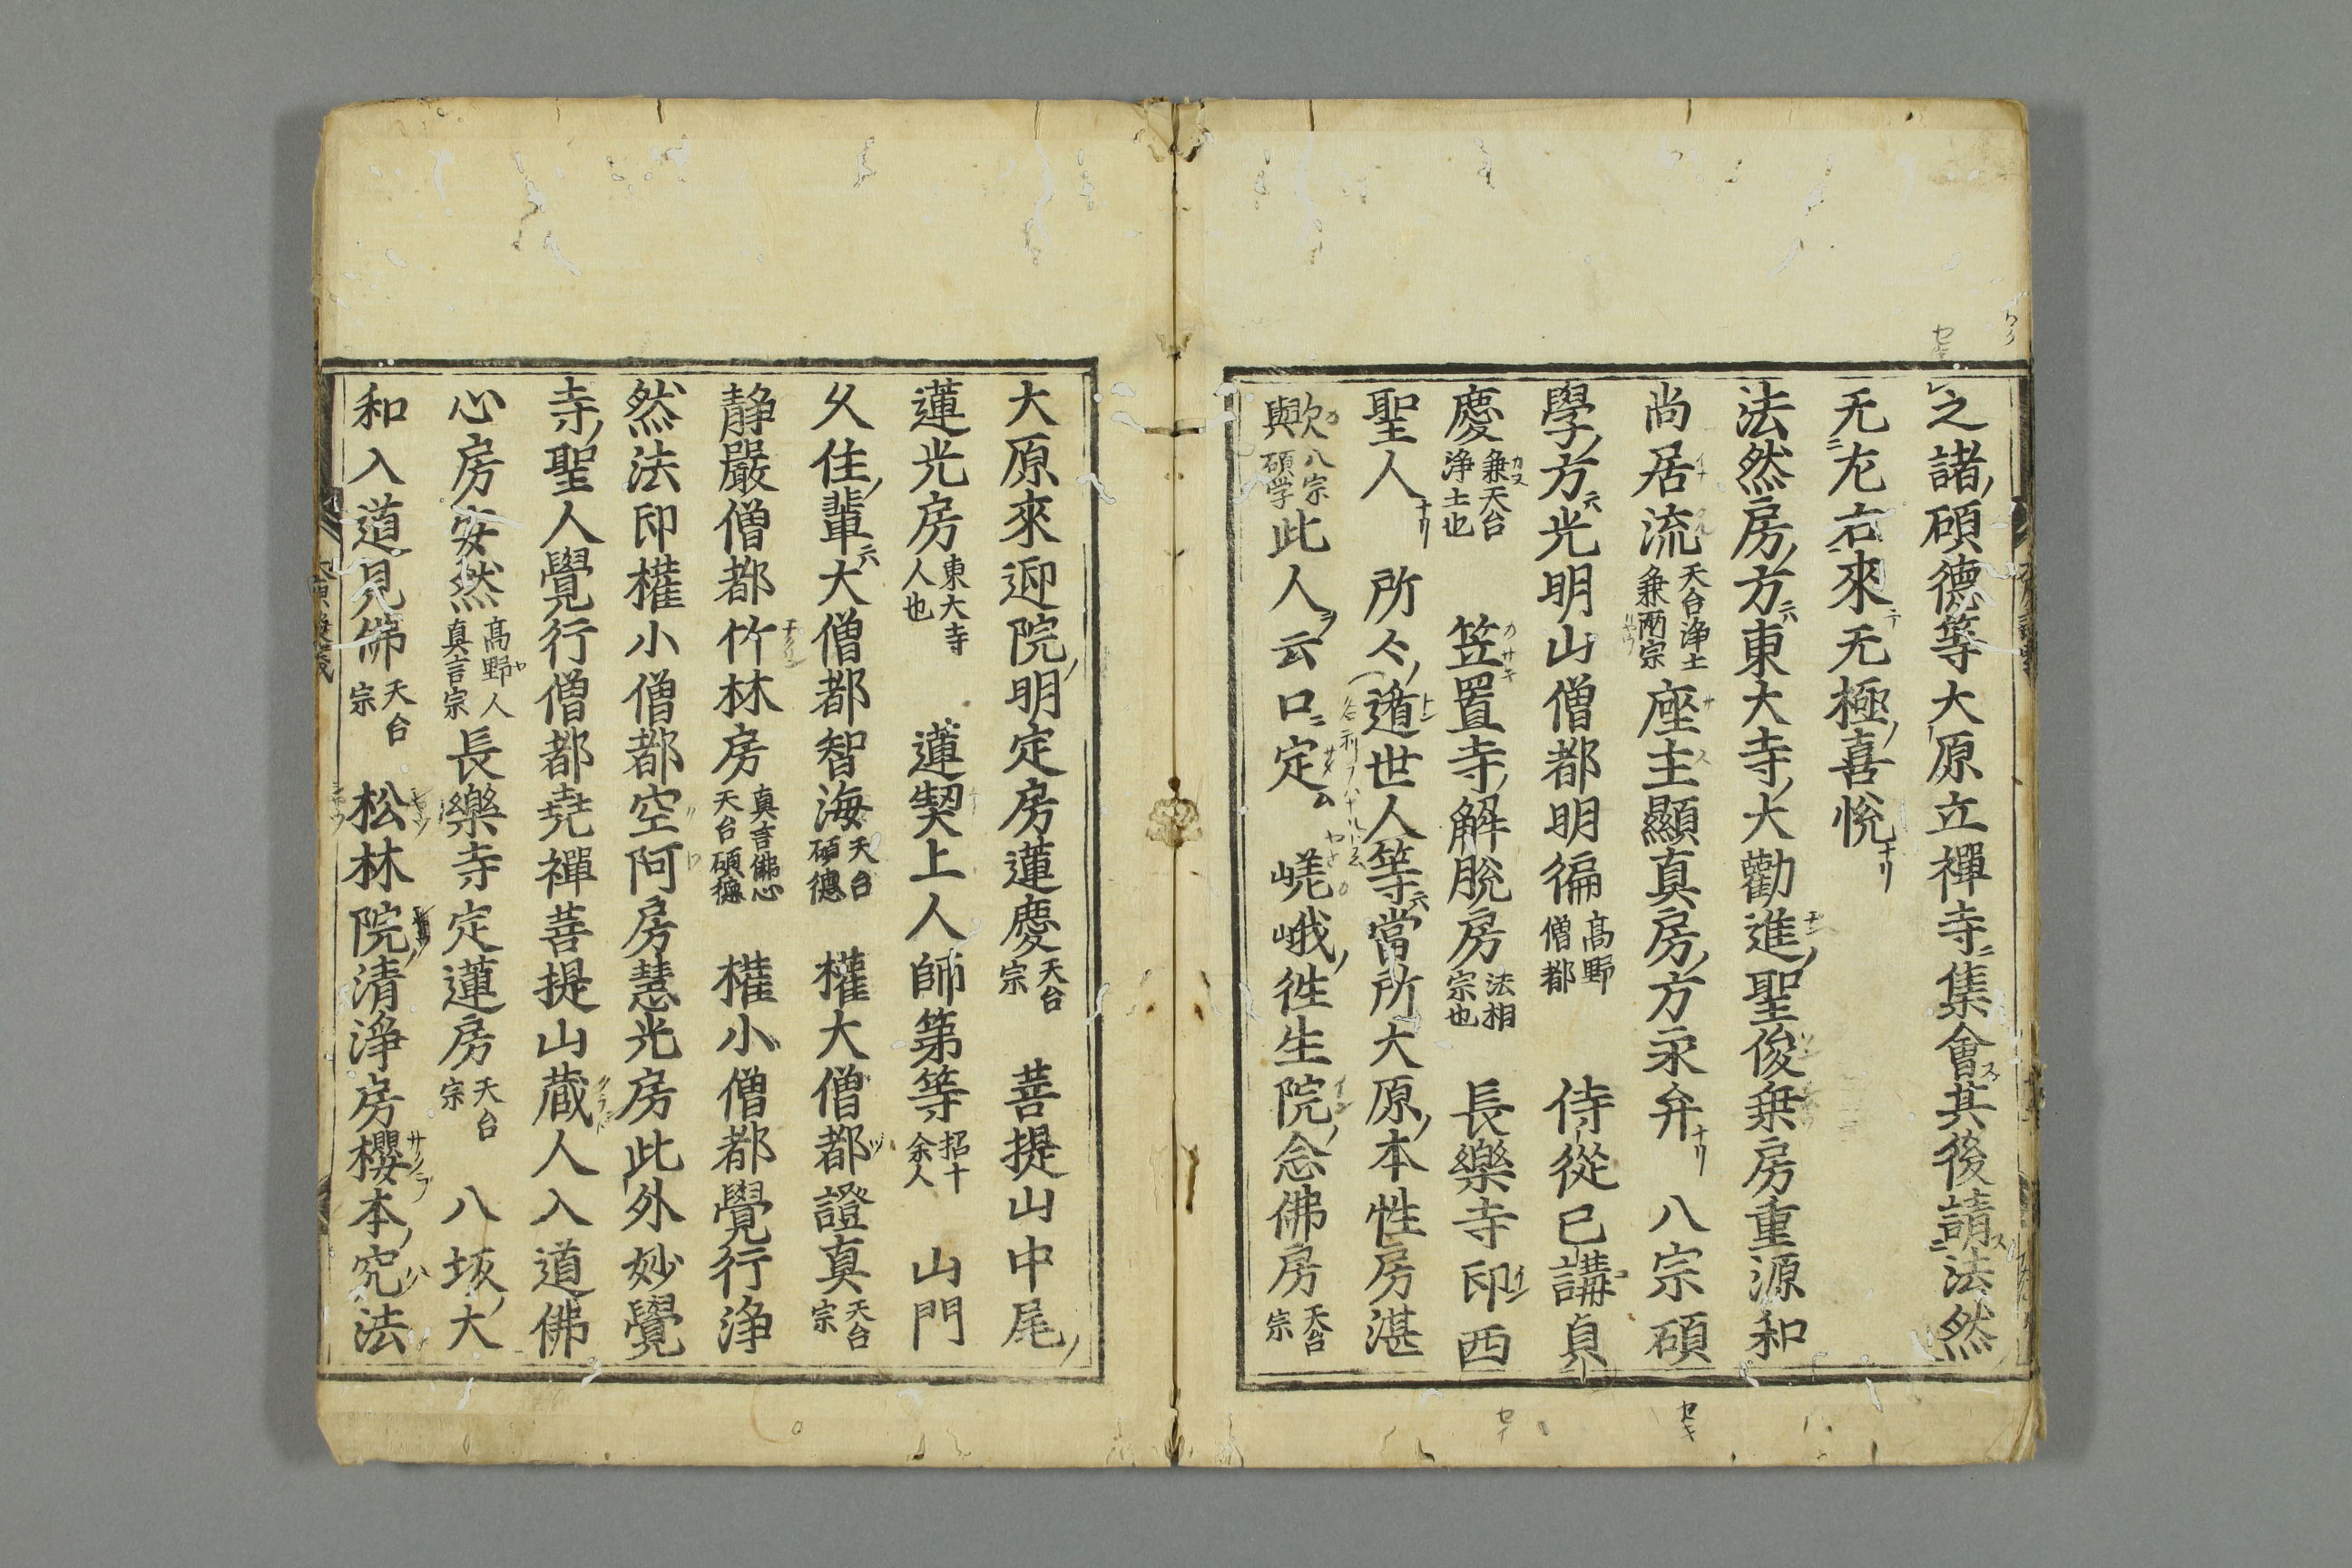 之諸碩德等大原立禪寺集會其後請法然
无左右來无極喜悅
法然房方東大寺大勸進聖俊乗房重源和
尚居流天台浄土兼兩宗座主顯真房方永弁 八宗碩
學方光明山僧都明徧高野僧都 侍從已講貞
慶兼天台浄土也 笠置寺解脱房法相宗也 長樂寺印西
聖人 所々遁世人等當所大原本性房湛
歟八宗與碩学此人云口定 嵯峨徃生院念佛房天台宗
大原來迎院明定房蓮慶天台宗 菩提山中尾
蓮光房東大寺人也 蓮契上人師第等招十余人 山門
久住輩大僧都智海天台碩德 權大僧都證真天台宗
静嚴僧都竹林房真言佛心天台碩德 權小僧都覺行浄
然法印權小僧都空阿房慧光房此外妙覺
寺聖人覺行僧都尭禪菩提山蔵人入道佛
心房安然高野人真言宗長樂寺定蓮房天台宗 八坂大
和入道見佛天台宗 松林院清浄房櫻本究法